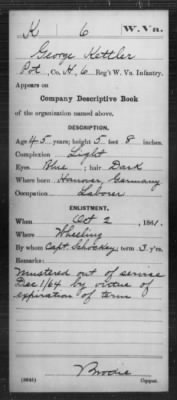 K 6 W. Va.
George Kettler
Pvt., Co. K, 6 Reg't W. Va. Infantry.
Appears on
Company Descriptive Book
of the organization named above.
DESCRIPTION.
Age 45 years; height 5 feet 8 inches.
Complexion Light
Eyes Blue; hair Dark
Where born Hanover Germany
Occupation Laborer
ENLISTMENT.
When Oct 2, 1861.
Where Wheeling
By whom Capt. Schockey; term 3 y'rs.
Remarks:
Mustered out of service
Dec 1/64 by virtue of
expiration of term
Brodie
Copyist.